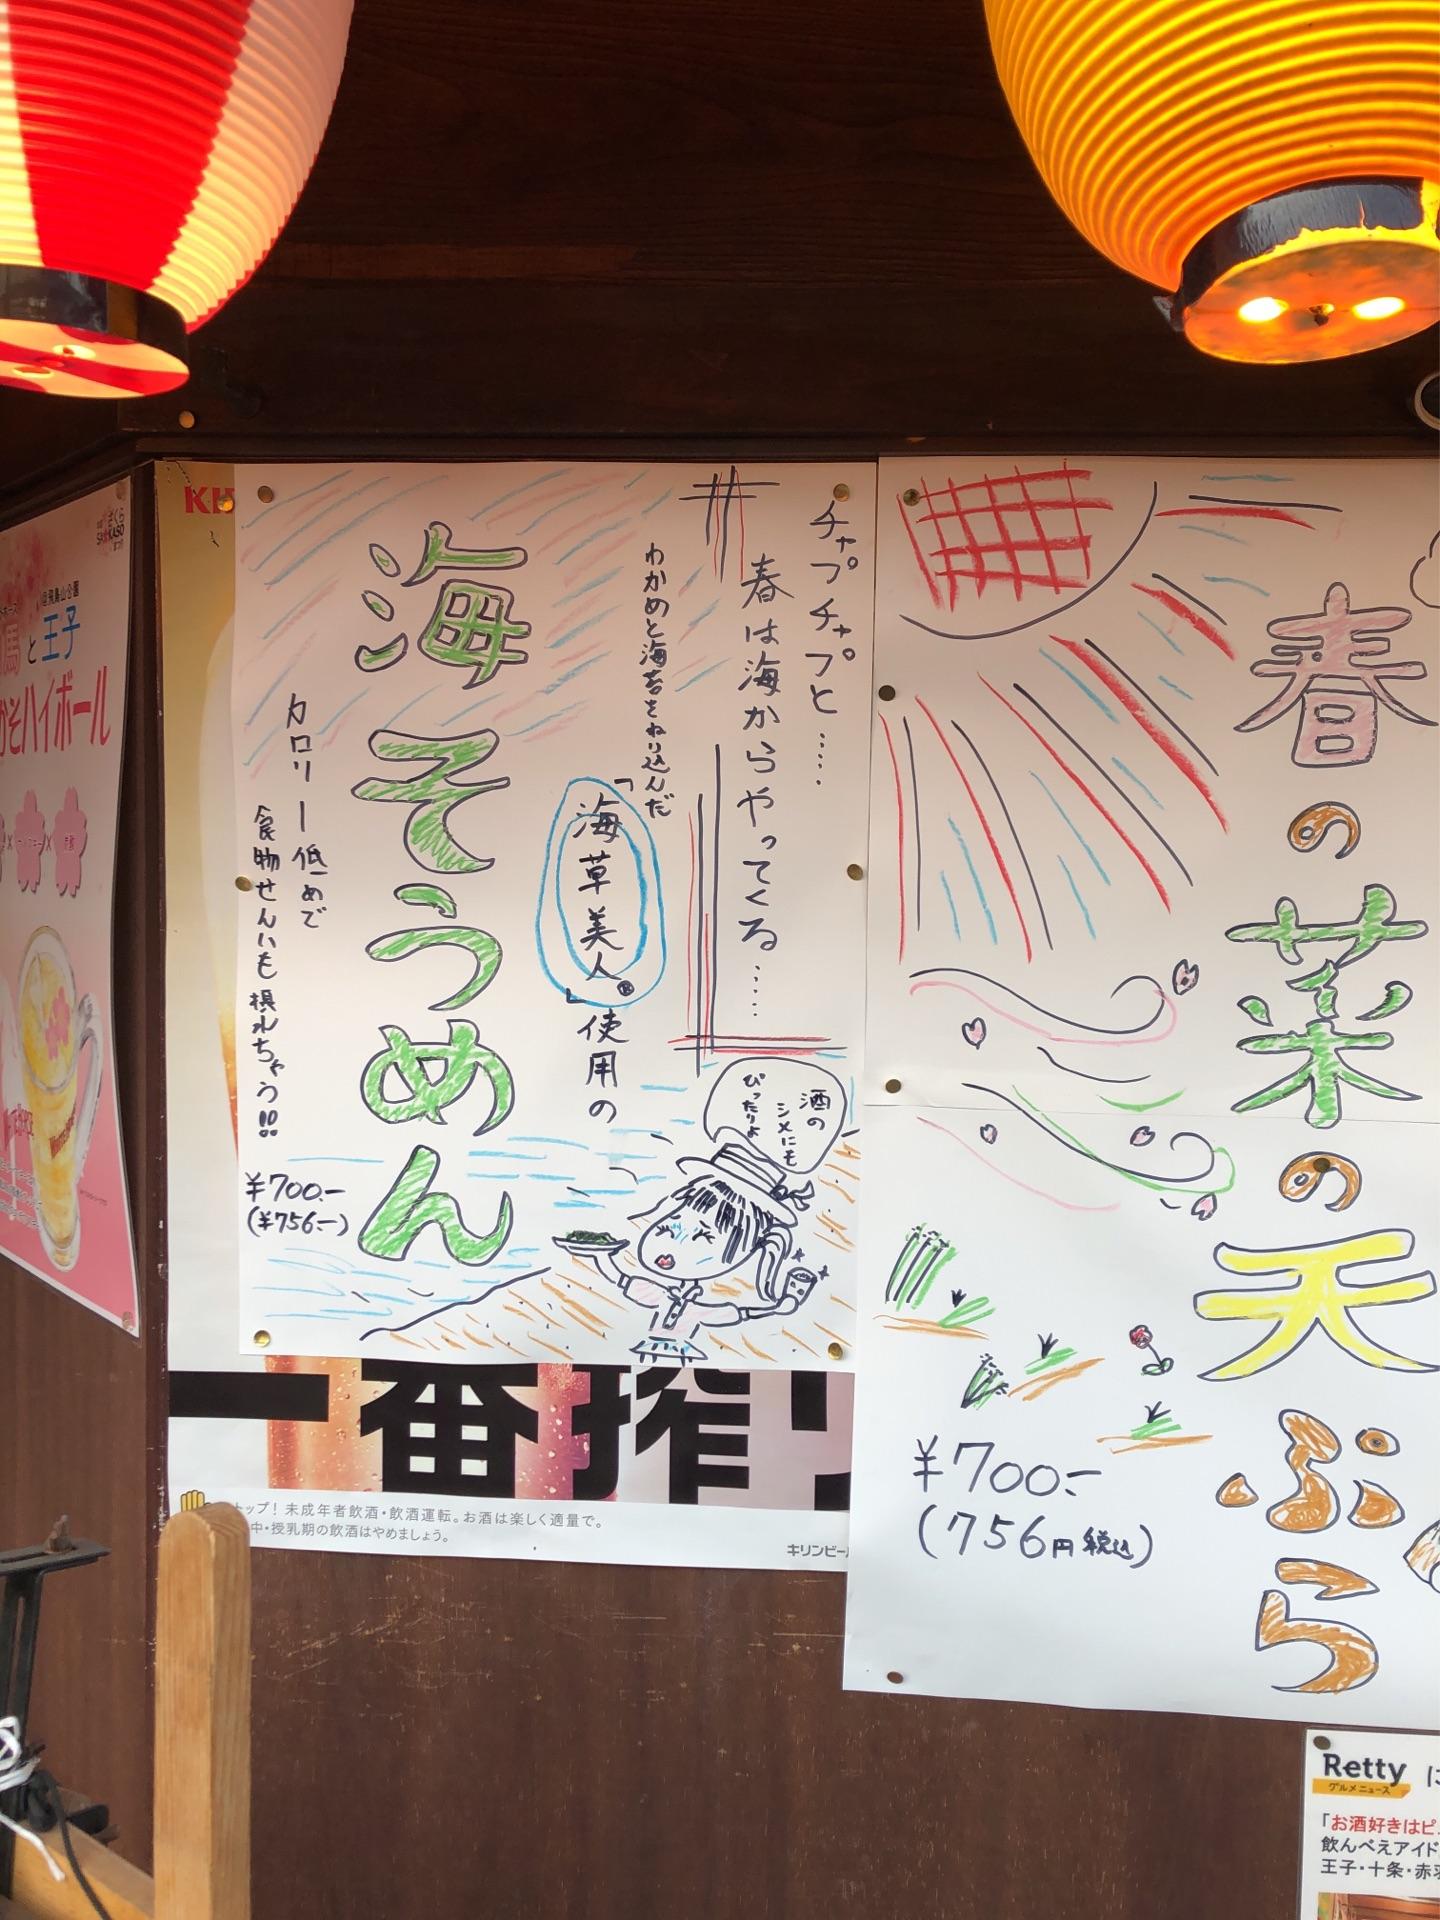 チャプチャプと……
春は海からやってくる……
わかめと海苔をねり込んだ
「海草美人」®使用の
海そうめん
カロリー低めで
食物せんいも摂れちゃう!!
¥700.-
(¥756.-)
酒の
シメにも
ぴったりよ
春の菜の天ぷら
¥700.-
(756円税込)
一番搾り
ストップ！未成年者飲酒・飲酒運転。お酒は楽しく適量で。
中・授乳期の飲酒はやめましょう。
キリンビール
さくら
SA*KASO
まつり
@飛鳥山公園
馬と王子
かそハイボール
Retty に
グルメニュース
「お酒好きはピ
飲んべえアイド
王子・十条・赤羽